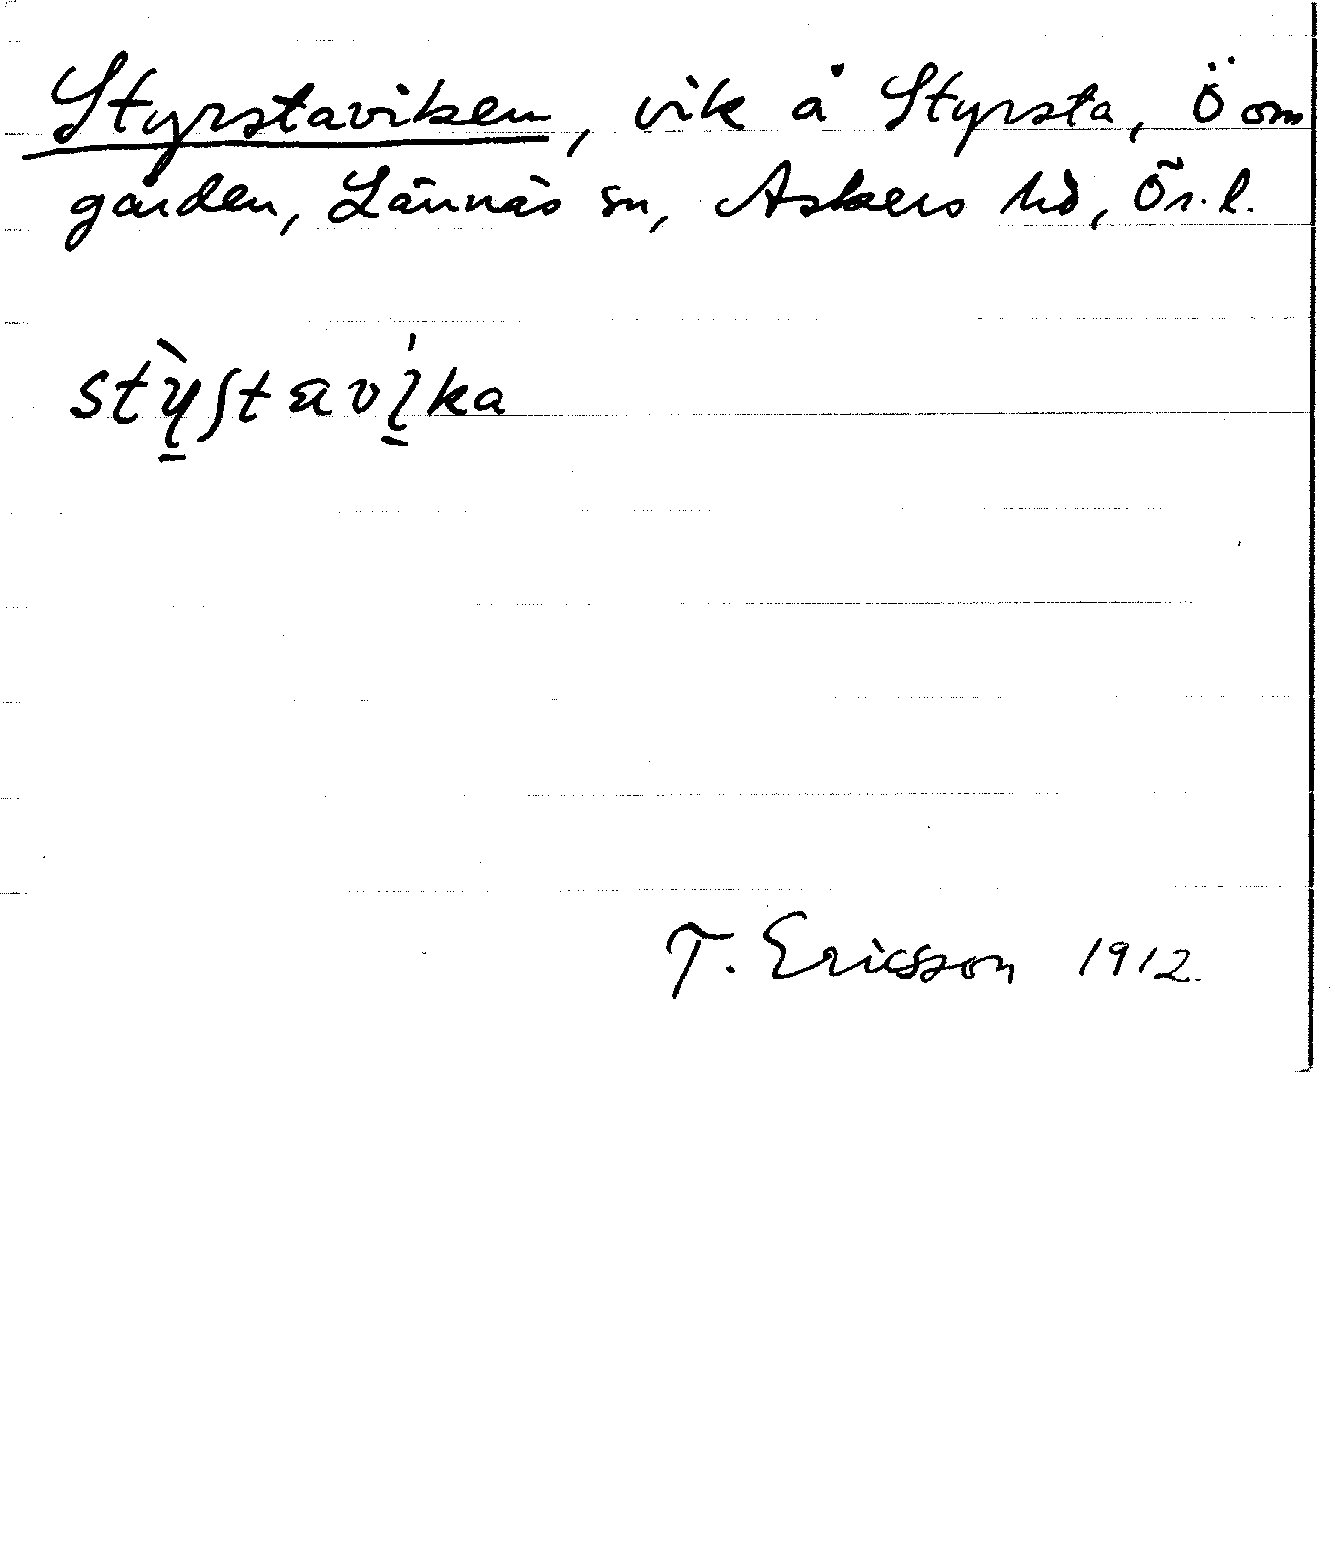 Styrstaviken, vik å Styrsta, Ö om
gården, Lännäs sn, Askers hd, Ör. l.
stỳ̠ʃtavi̠ka
T. Ericsson 1912.